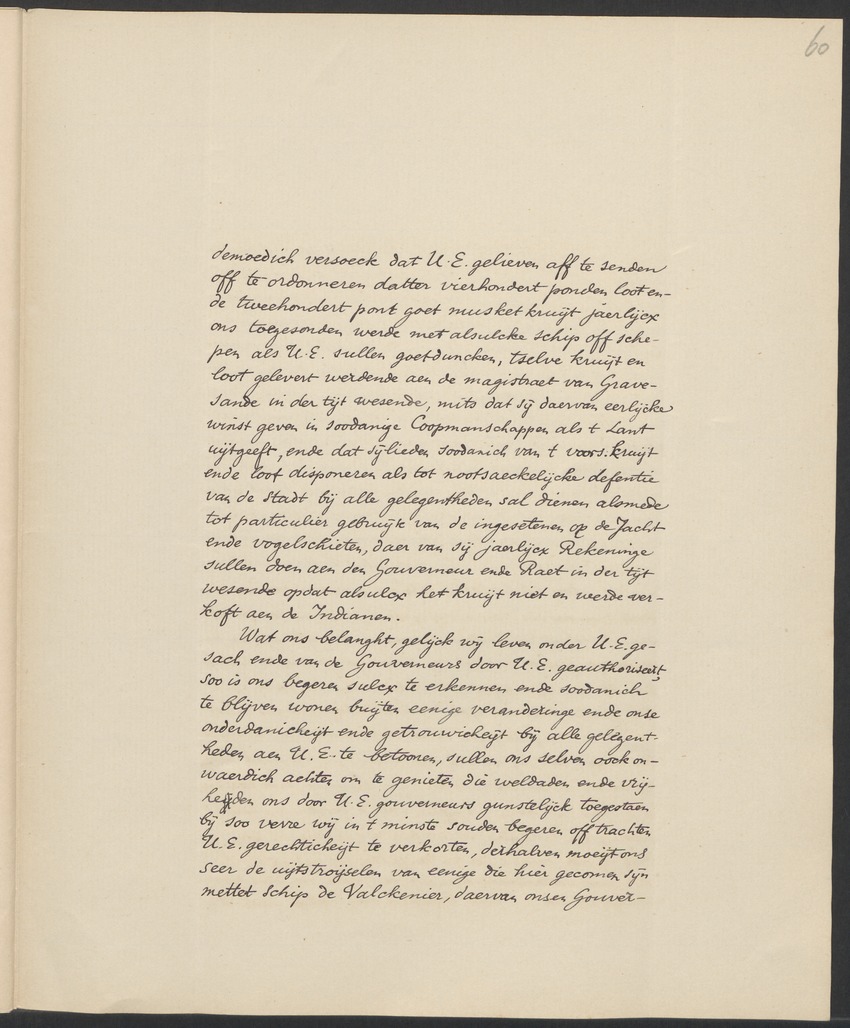 60
demoedich versoeck dat U.E. gelieven aff te senden
off te ordonneren datter vierhondert ponden loot en-
de tweehondert pont goet musket kruijt jaerlijcx
ons toegesonden werde met alsulcke schip off sche-
pen als U.E. sullen goetduncken, tselve kruijt en
loot gelevert werdende aen de magistraet van Grave-
sande in der tijt wesende, mits dat sij daervan eerlijcke
winst geven in soodanige Coopmanschappen als t Lant
uijtgeeft, ende dat sijlieden soodanich van t voors. kruijt
ende loot disponeren als tot nootsaeckelijcke defentie
van de Stadt bij alle gelegentheden sal dienen alsmede
tot particulier gebruijk van de ingesetenen op de Jacht
ende vogelschieten, daer van sij jaerlijcx Rekeninge
sullen doen aen den Gouverneur ende Raet in der tijt
wesende opdat alsulcx het kruijt niet en werde ver-
koft aen de Indianen.
Wat ons belanght, gelijck wij leven onder U.E. ge-
sach ende van de Gouverneurs door U.E. geauthoriseert,
soo is ons begeren sulcx te erkennen ende soodanich
te blijven wonen buijten eenige veranderinge ende onse
onderdanicheijt ende getrouwicheijt bij alle gelegent-
heden aen U.E. te betoonen, sullen ons selven oock on-
waerdich achten om te genieten die weldaden ende vrij-
heijden ons door U.E. gouverneurs gunstelijck toegestaen
bij soo verre wij in t minste souden begeren off trachten
U.E. gerechticheijt te verkorten, derhalven moeijt ons
seer de uijtstroijselen van eenige die hier gecomen sijn
mettet schip de Valckenier, daervan onsen Gouver-